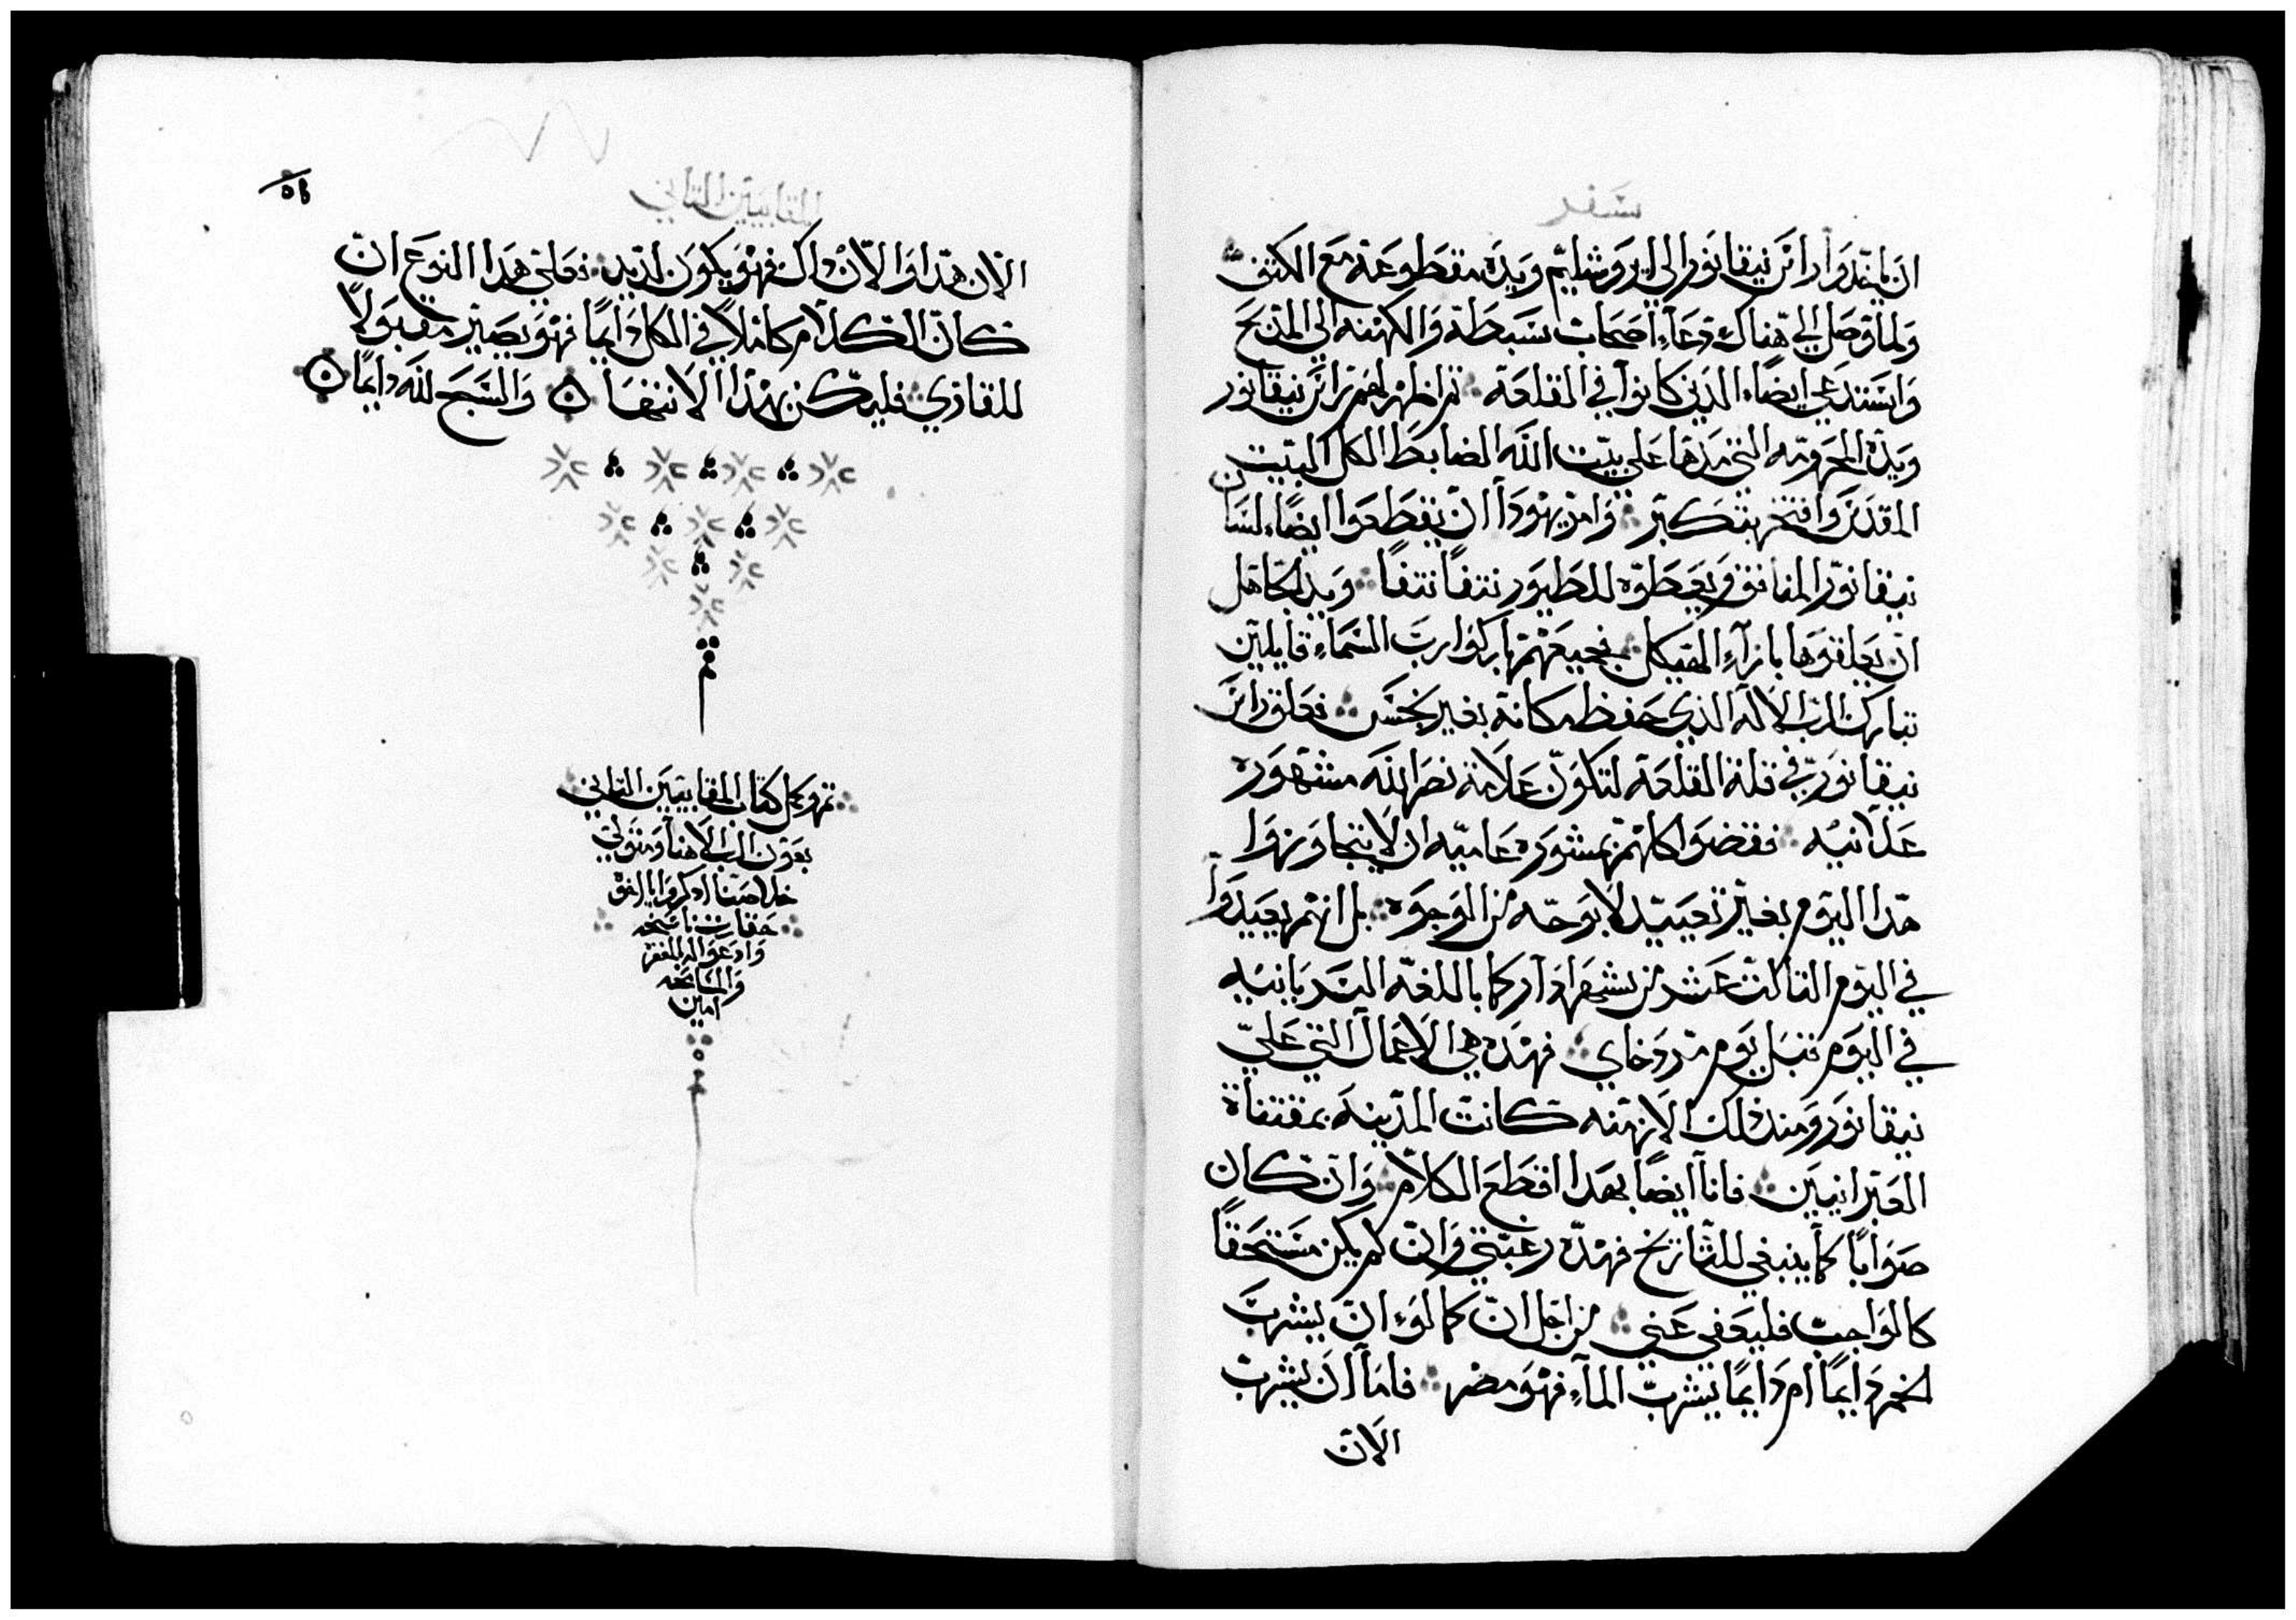 سفر
ان يمتدوا راس نيقانور الي ايروشليم ويده مقطوعة مع الكتف
ولما وصل الي هناك دعاء اصحاب سبطة والكهنه الي المدبح
واستدعي ايضاء الدين كانوا في القلعة تم اظهر لهم راس نيقانور
ويده المحرومه التي مدها علي بيت الله الضابط الكل البيت
المقدس وافتخر بتكبر وامر يهودا ان يقطعوا ايضاء لسان
نيقانور المنافق ويعطوه للطيور نتفا نتفا ويد الجاهل
ان يعلقوها بازاء الهيكل فجميعهم باركوا رب السماء قايلين
تبارك الرب الاله الذي حفظ مكانه بغير نجس فعلق راس
نيقانور في قلة القلعة لتكون علامة نصر الله مشهوره
علانيه فقضوا كلهم بمشوره عاميه ان لا يتجاوزوا
هدا اليوم بغير تعييد لا بوجه من الوجوه بل انهم يعيدوا
في اليوم الثالث عشر من شهر ادار كما باللغه السريانيه
في اليوم قبل يوم مردخاي فهده هي الاعمال التي علي
نيقانور ومند ذلك الازمنه كانت المدينه بمقتناة
العبرانيين فانا ايضا بهدا اقطع الكلام وان كان
صوابا كما ينبغي للتاريخ فهده رغبتي وان لم يكن مستحقا
كالواجب فليعفي عني من اجل ان كما لوء ان يشرب
الخمر دايما ام دايما يشرب الماء فهو مضر فاما ان يشرب
الان
المقابيين التاني
٥٦
الان هدا والان داك فهو يكون لديد فعلي هدا النوع ان
كان الكلام كاملا في الكل دايما فهو يصير مقبولا
للقاري فليكن بهدا الانتها والسبح لله دايما
تم
تم وكمل كتاب المقابيين التاني
بعون الرب الاهنا ومتولي
خلاصنا ادكروا يا اخوة
حقارت ناسخه
وادعوا له بالمغفره
والمسامحه
امين